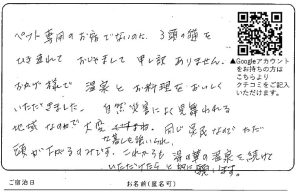 ペット専用のお宿でないのに、3頭の猫を
ひき連れて おじゃまして 申し訳 ありません。
おかげ様で 温泉と お料理を おいしく
いただきました。 自然災害によく見舞われる
地域 なので 大変
同じ 県民として ただ
頭が下がるのみです。これからも 湯の 温泉を続けて
いただけたらと 願います。
▲Googleアカウント
をお持ちの方は
こちらより
クチコミをご記入
いただけます。
ご宿泊日 お名前(匿名可)